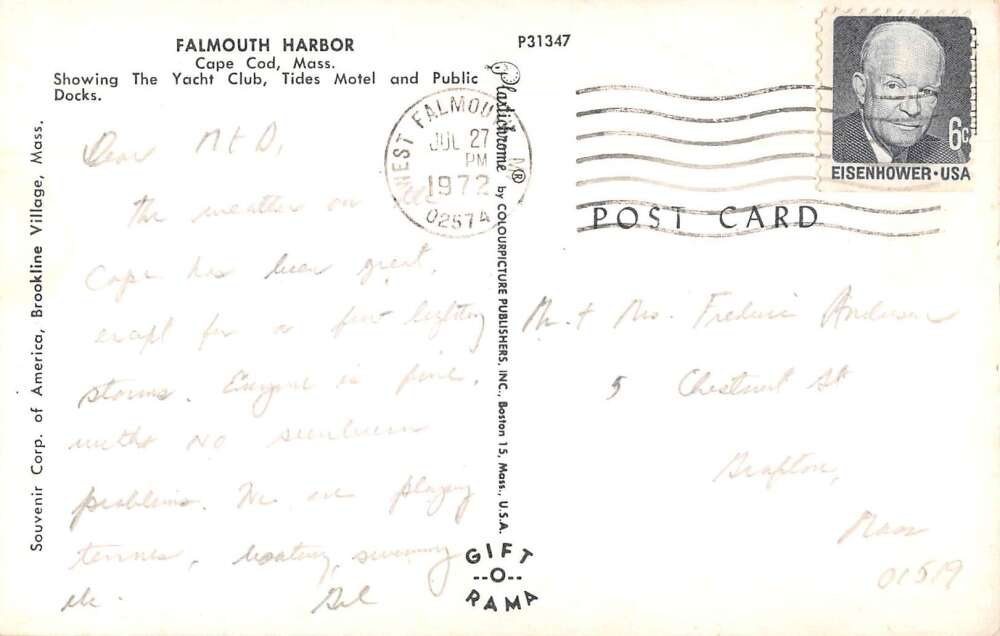 FALMOUTH HARBOR
Cape Cod, Mass.
Showing The Yacht Club, Tides Motel and Public
Docks.
P31347
Souvenir Corp. of America, Brookline Village, Mass.
Plastichrome ® by COLOURPICTURE PUBLISHERS, INC., Boston 15, Mass., U.S.A.
WEST FALMOU M
JUL 27
PM
1972
02574
6c
EISENHOWER·USA
POST CARD
Dear M & D,
The weather on
Cape has been great,
except for a few lighting
storms. Everyone is fine,
with no sunburn
problems. We are playing
tennis, boating, swimming
etc.
Mr. & Mrs. Frederic Anderson
5 Chestnut St
Grafton,
Mass
01519
GIFT
--O--
RAMA